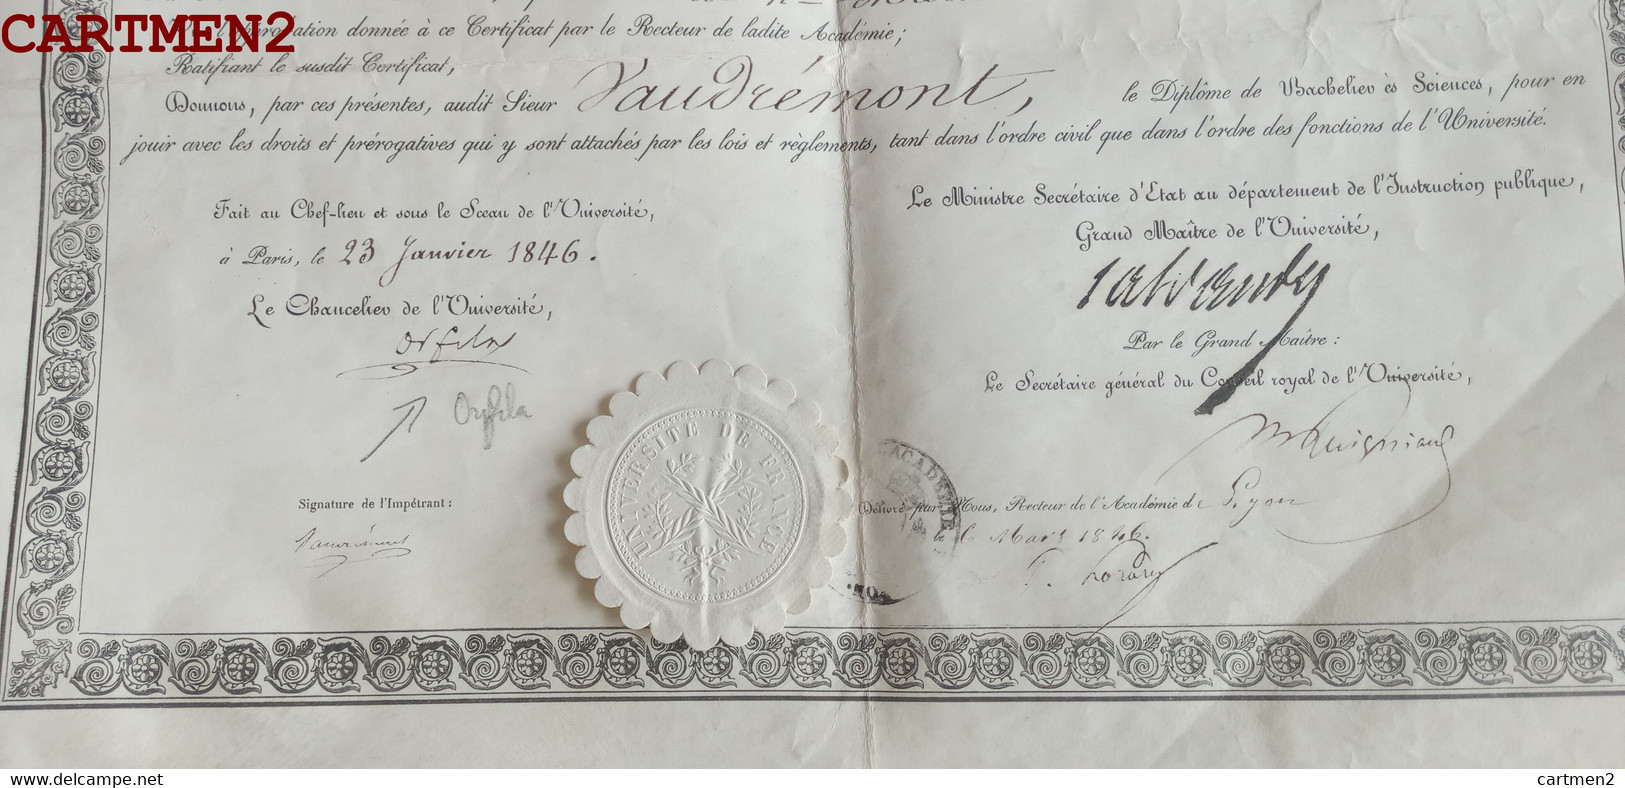 CARTMEN2
l'approbation donnée à ce Certificat par le Recteur de ladite Académie;
Ratifiant le susdit Certificat,
Donnons, par ces présentes, audit Sieur Vaudrémont, le Diplôme de Bachelier ès Sciences, pour en
jouir avec les droits et prérogatives qui y sont attachés par les lois et règlements, tant dans l'ordre civil que dans l'ordre des fonctions de l'Université.
Fait au Chef-lieu et sous le Sceau de l'Université,
à Paris, le 23 Janvier 1846.
Le Chancelier de l'Université,
Orfila
Orfila
Signature de l'Impétrant:
Vaudrémont
UNIVERSITÉ DE FRANCE
Le Ministre Secrétaire d'Etat au département de l'Instruction publique,
Grand Maître de l'Université,
Salvandy
Par le Grand Maître:
Le Secrétaire général du Conseil royal de l'Université,
ACADEMIE
Délivré par Nous, Recteur de l'Académie de Lyon
le 6 Mars 1846.
delcampe.net
cartmen2